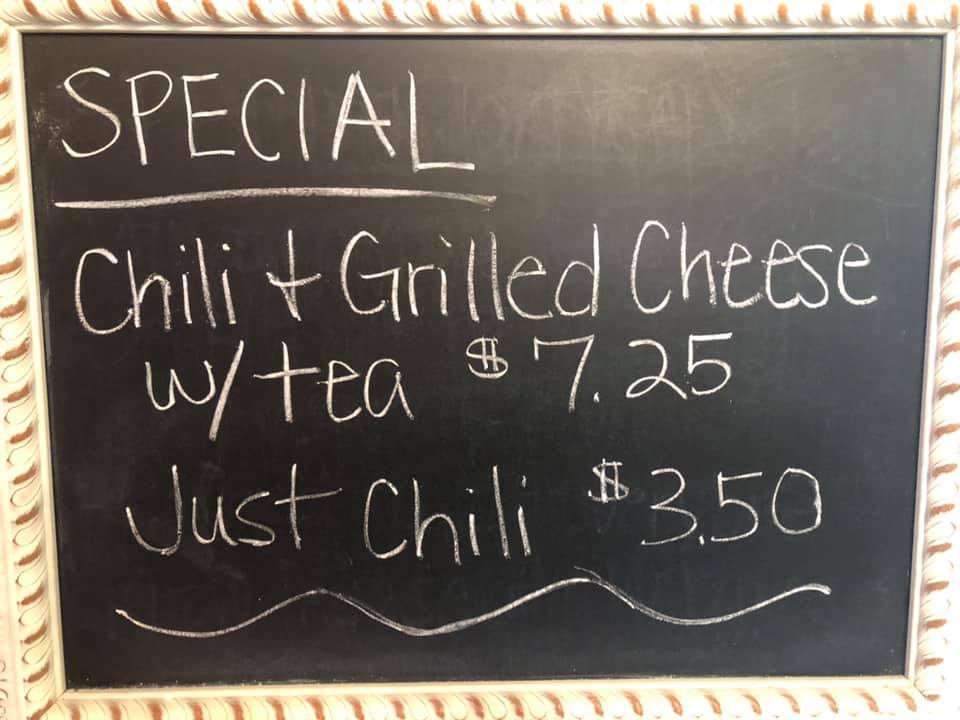 SPECIAL
Chili + Grilled Cheese
w/ tea $7.25
Just Chili $3.50